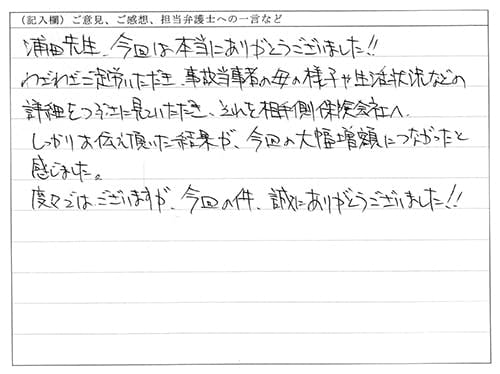 （記入欄）ご意見、ご感想、担当弁護士への一言など
浦田先生、今回は本当にありがとうございました!!
わざわざご足労いただき、事故当事者の母の様子や生活状況などの
詳細をつぶさに見ていただき、それを相手側保険会社へ、
しっかりお伝え頂いた結果が、今回の大幅増額につながったと
感じました。
度々ではございますが、今回の件、誠にありがとうございました!!